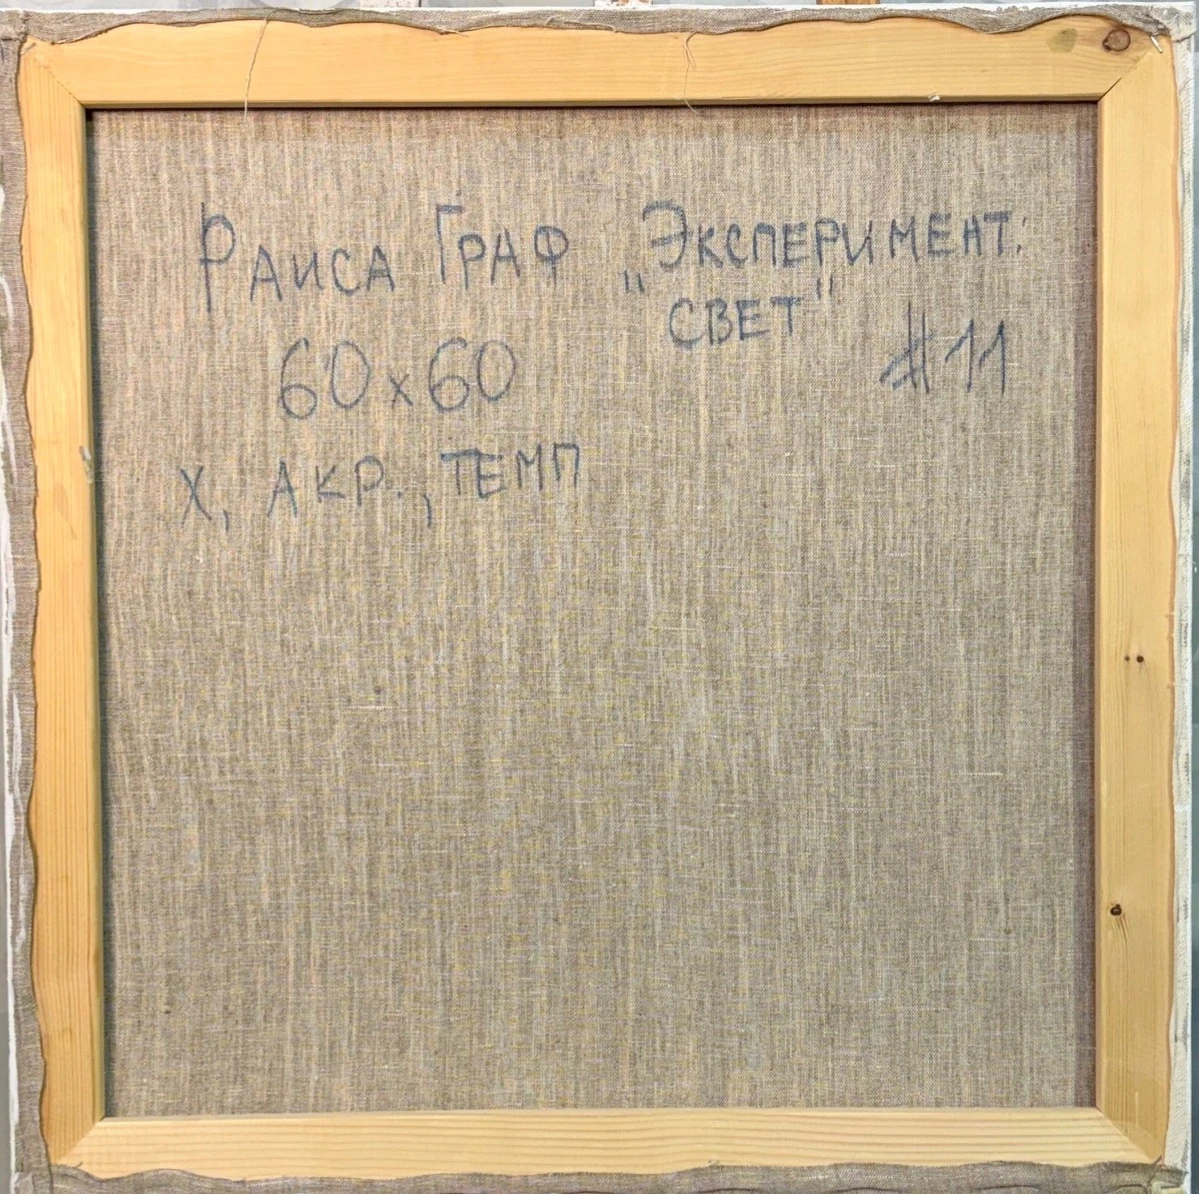 РАИСА ГРАФ „ЭКСПЕРИМЕНТ:
СВЕТ"
60х60 #11
Х, АКР., ТЕМП